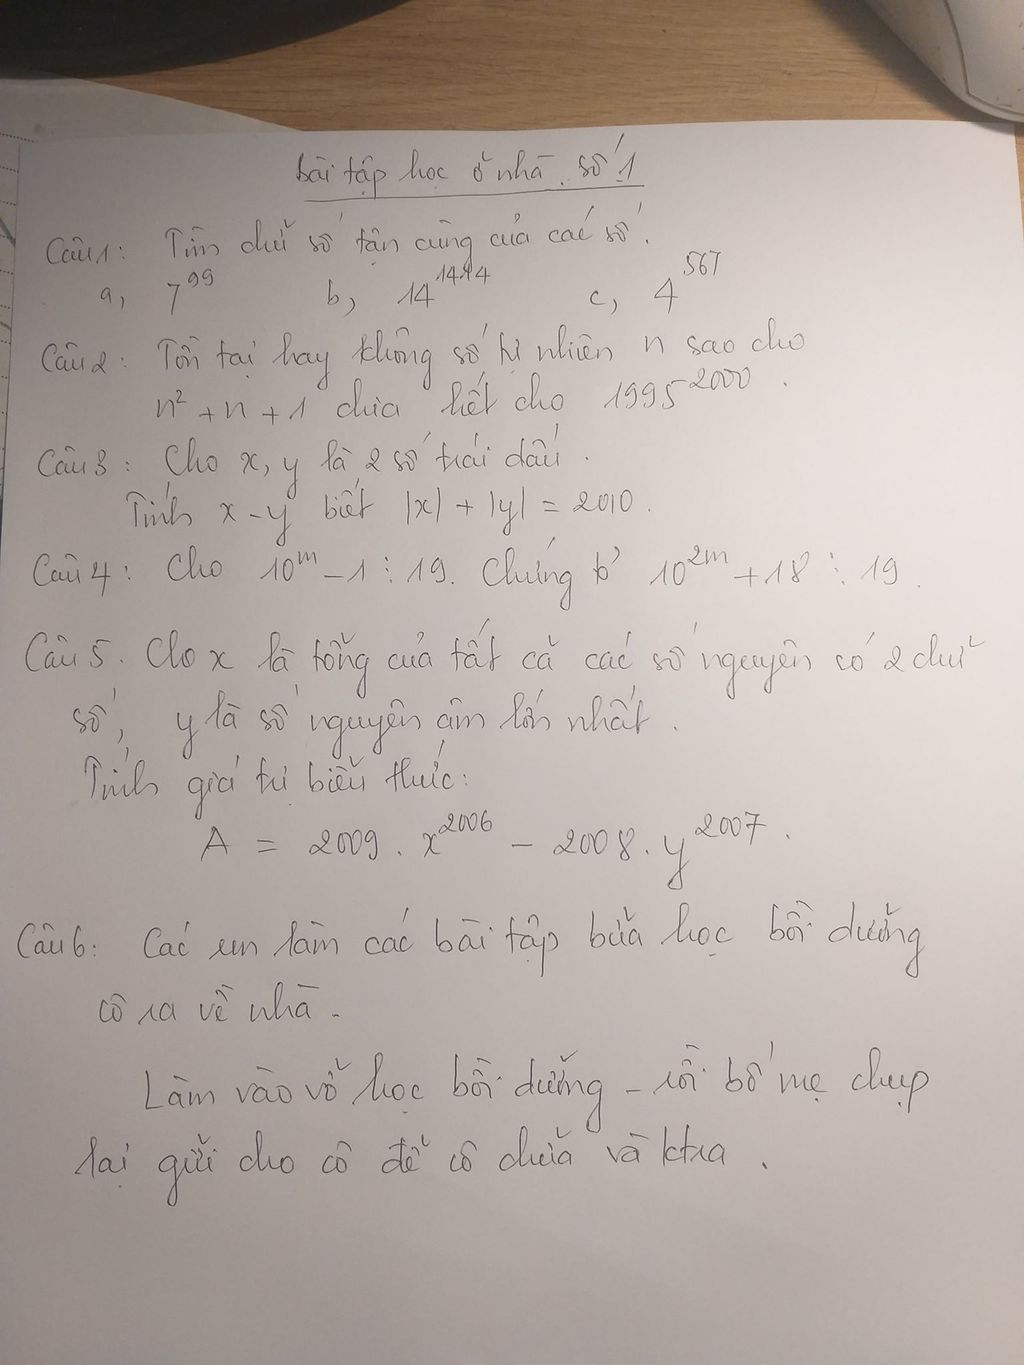 bài tập học ở nhà. số 1
Câu 1: Tìm chữ số tận cùng của các số.
a, 7^99 b, 14^1414 c, 4^567
Câu 2: Tồn tại hay không số tự nhiên n sao cho
n² + n + 1 chia hết cho 1995^2000.
Câu 3: Cho x, y là 2 số trái dấu.
Tính x - y biết |x| + |y| = 2010.
Câu 4: Cho 10^m - 1 ⋮ 19. Chứng tỏ 10^2m + 18 ⋮ 19.
Câu 5. Cho x là tổng của tất cả các số nguyên có 2 chữ
số, y là số nguyên âm lớn nhất.
Tính giá trị biểu thức:
A = 2009. x^2006 - 2008. y^2007.
Câu 6: Các em làm các bài tập bữa học bồi dưỡng
cô ra về nhà.
Làm vào vở học bồi dưỡng - rồi bố mẹ chụp
lại gửi cho cô để cô chữa và ktra.